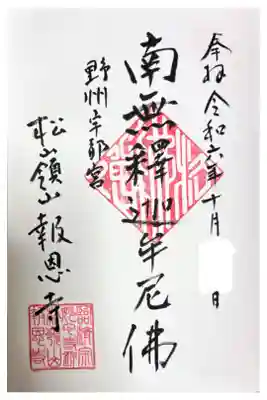 奉拝 令和六年十月 日
南無釋迦牟尼佛
野州宇都宮
松嶺山報恩寺